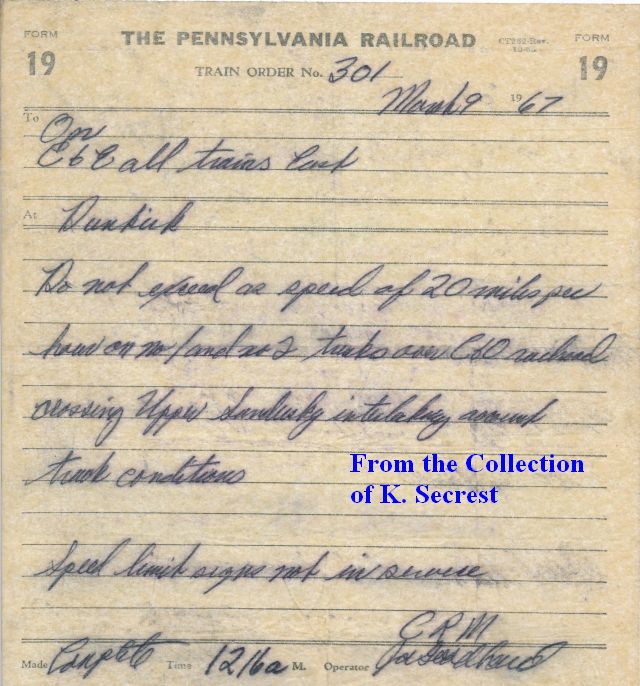 FORM 19 THE PENNSYLVANIA RAILROAD CT282-Rev. FORM 19
TRAIN ORDER No. 301
March 9 1967
To Opr
C&E all trains East
At Dunkirk
Do not exceed a speed of 20 miles per
hour on no 1 and no 2 tracks over C&O railroad
crossing Upper Sandusky interlocking account
track conditions
From the Collection
of K. Secrest
Speed limit signs not in service
C R M
Made Complete Time 1216a M. Operator